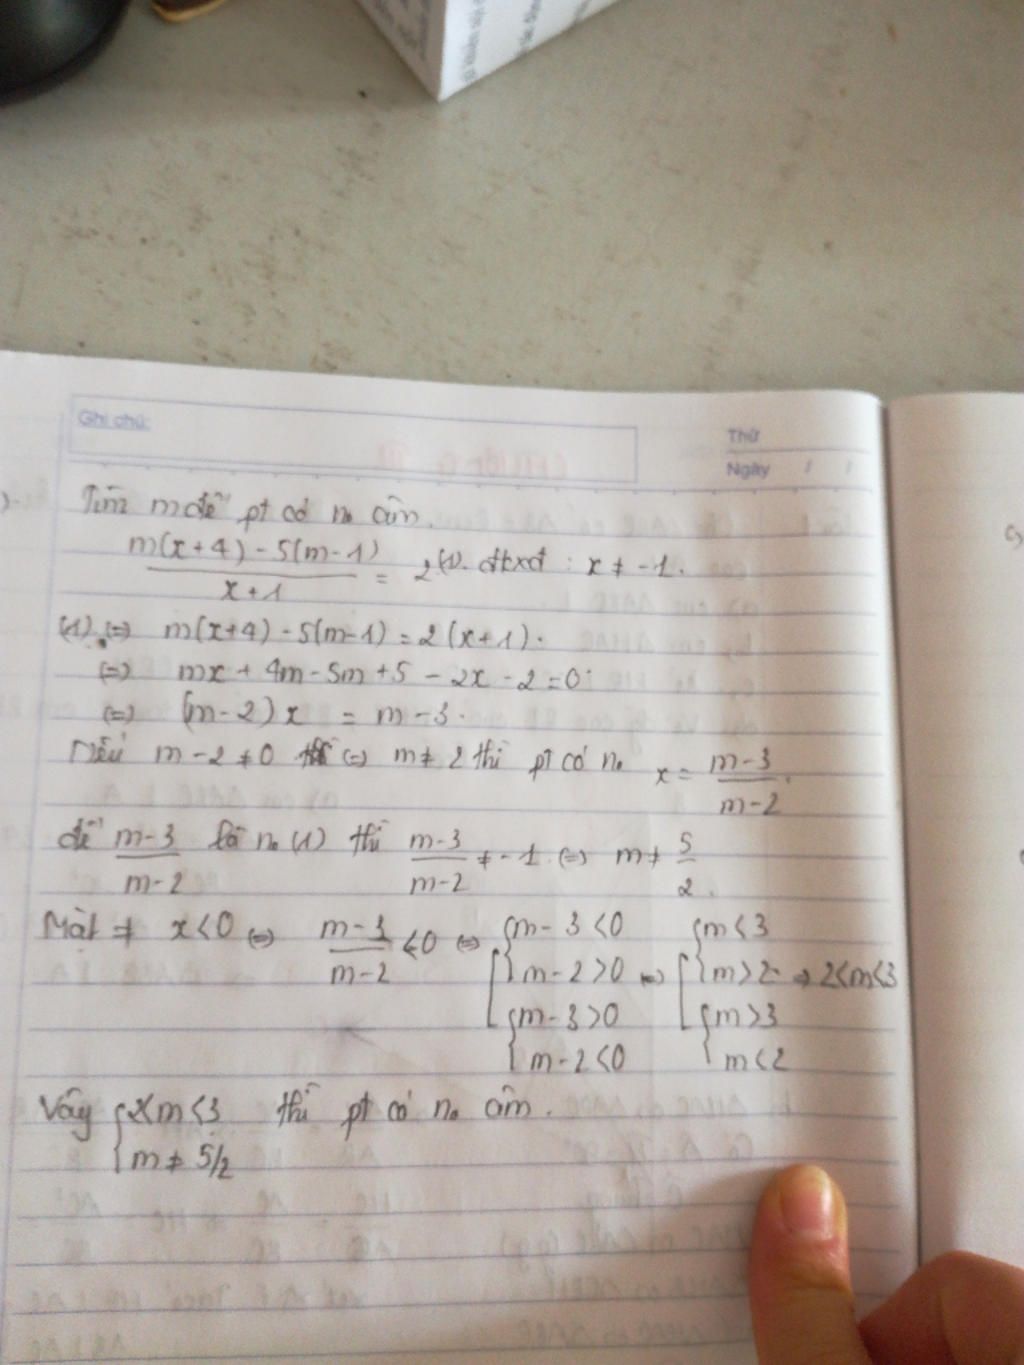 Ghi chú:
Thứ
Ngày / /
Tìm m để pt có n₀ âm.
m(x+4) - 5(m-1) / x+1 = 2 (1). đkxđ : x ≠ -1.
(1) (=) m(x+4) - 5(m-1) = 2(x+1).
(=) mx + 4m - 5m + 5 - 2x - 2 = 0
(=) (m-2)x = m-3.
Nếu m-2 ≠ 0 (=) m ≠ 2 thì pt có n₀ x = m-3 / m-2.
để m-3 / m-2 là n₀ (1) thì m-3 / m-2 ≠ -1 (=) m ≠ 5/2.
Mặt ≠ x<0 (=) m-3 / m-2 <0 (=) [ { m-3<0 [ { m<3
m-2>0 (=) m>2 => 2<m<3
{ m-3>0 { m>3
m-2<0 m<2
Vậy { 2<m<3 thì pt có n₀ âm.
m ≠ 5/2
c)